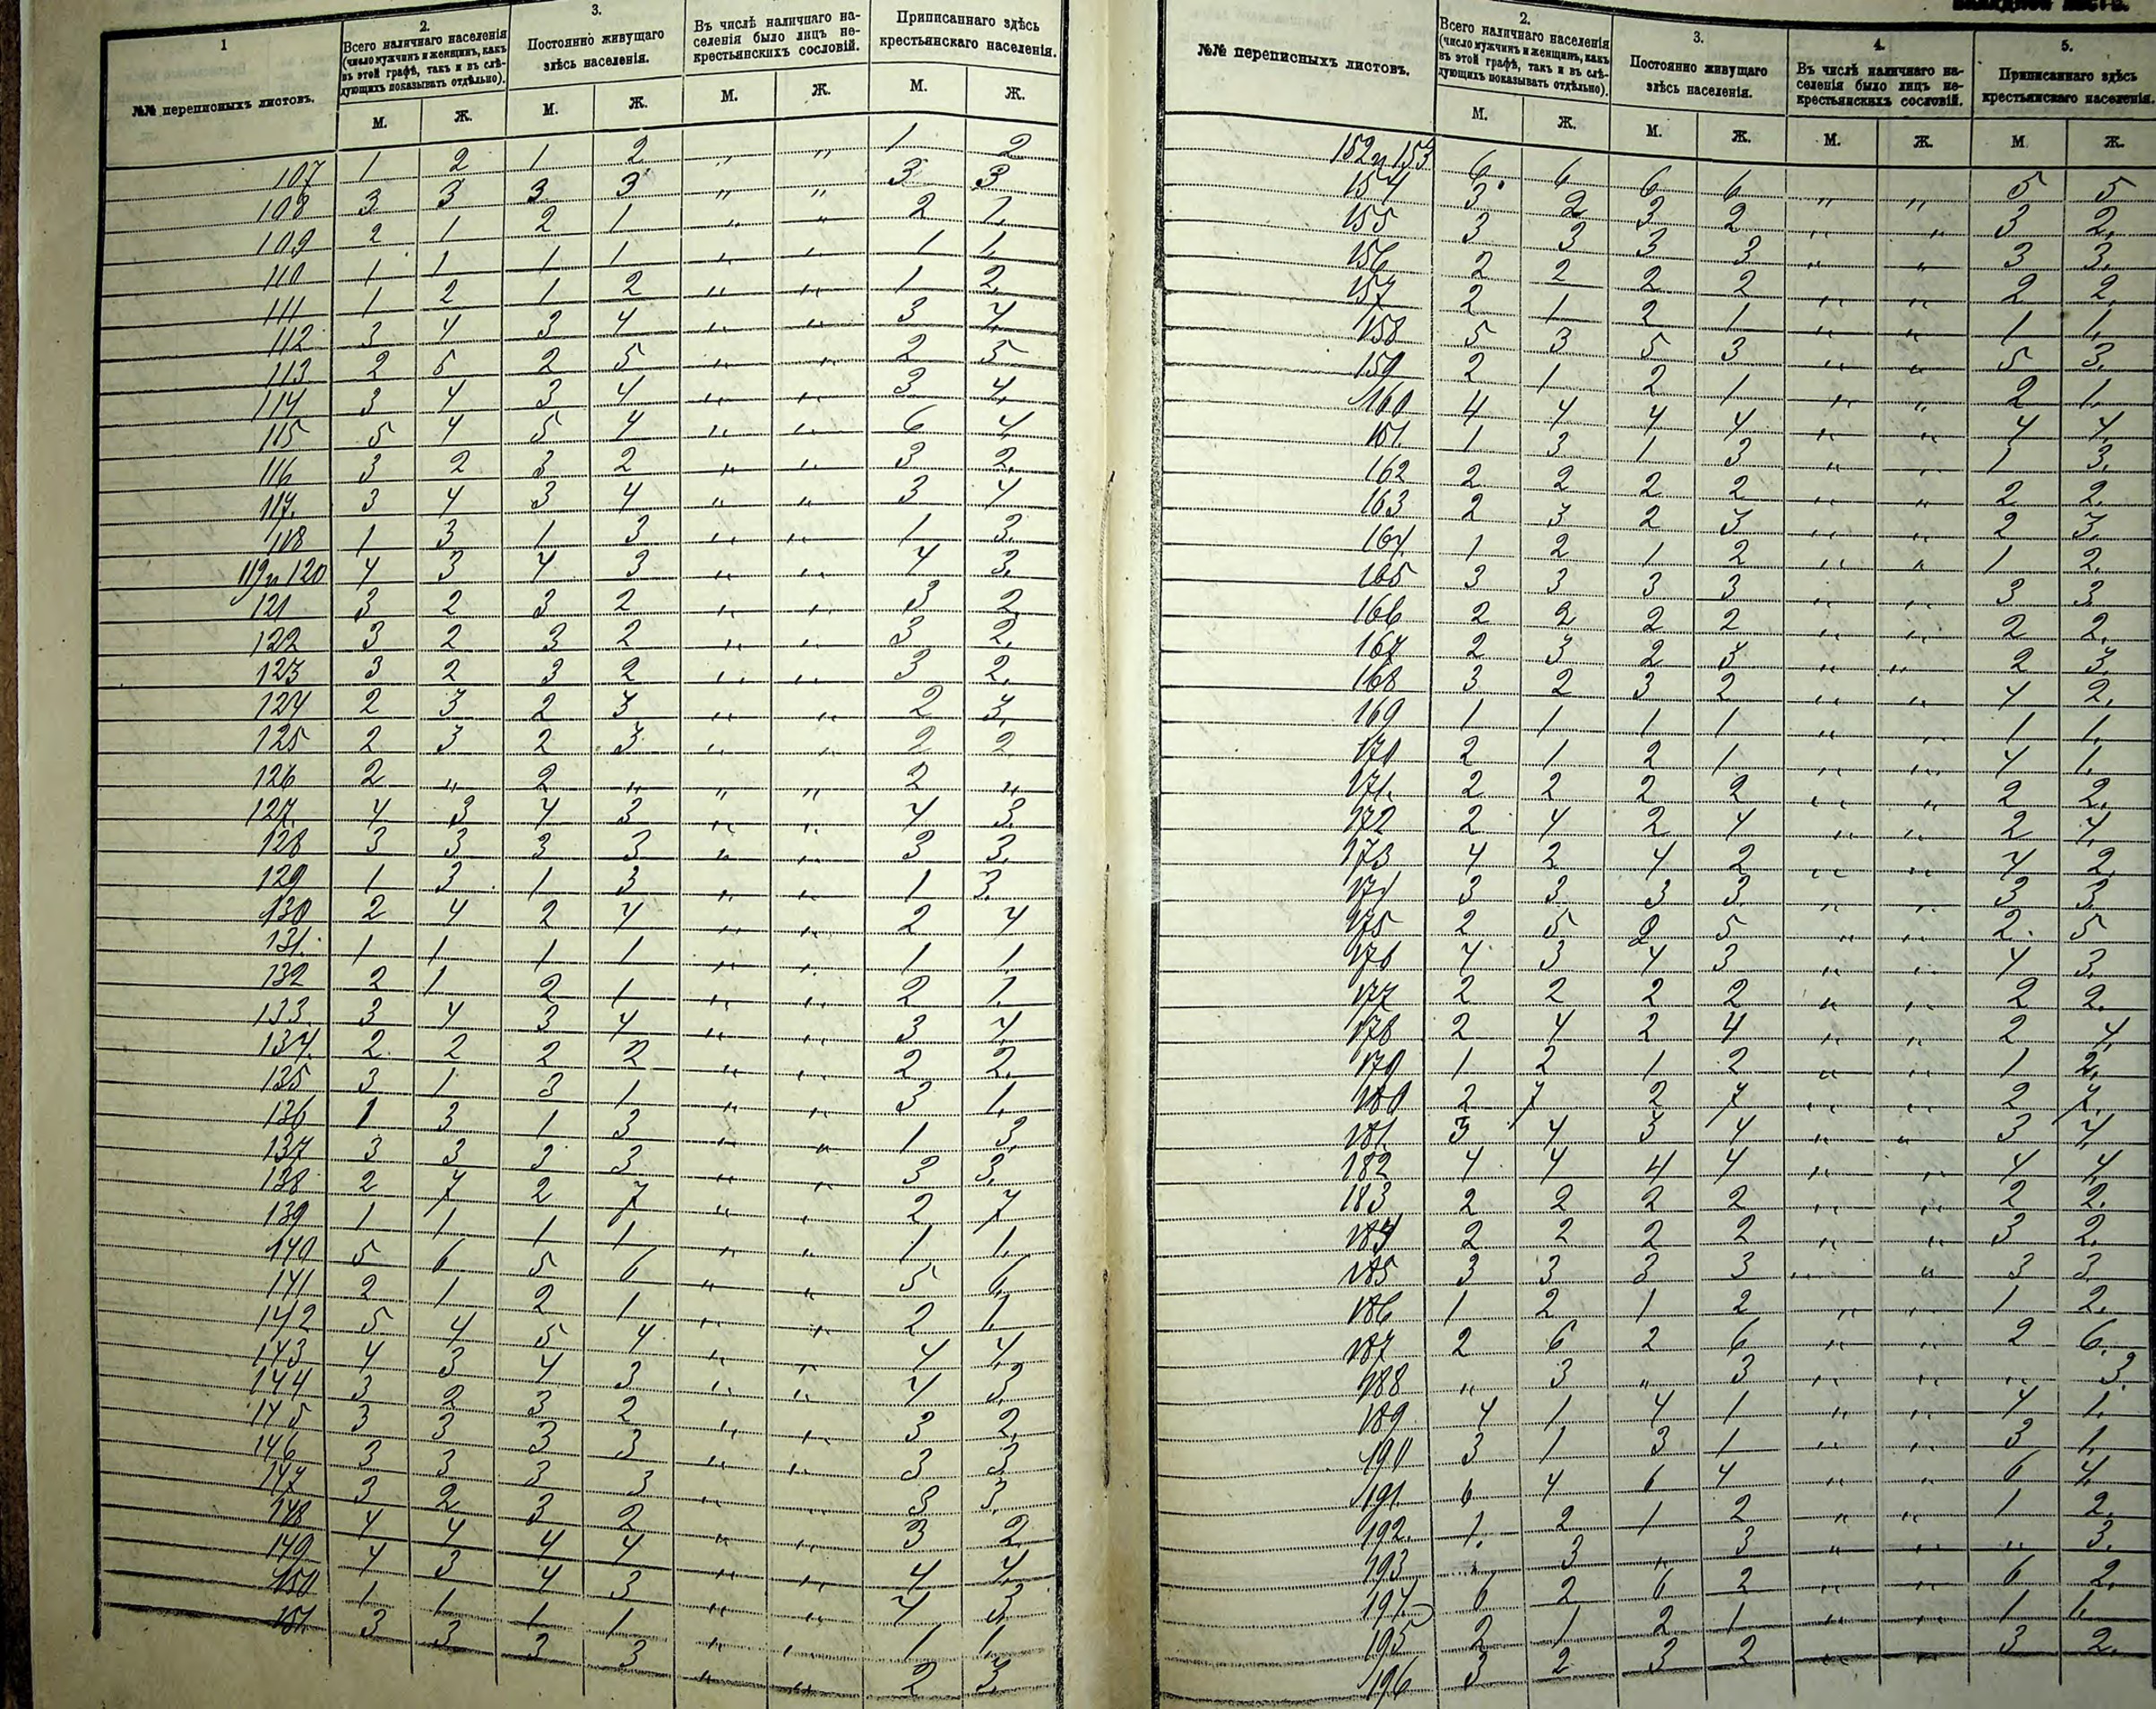 1
2.
Всего наличнаго населенія (число мужчинъ и женщинъ, какъ въ этой графѣ, такъ и въ слѣдующихъ показывать отдѣльно).
3.
Постоянно живущаго здѣсь населенія.
Въ числѣ наличнаго населенія было лицъ некрестьянскихъ сословій.
Приписаннаго здѣсь крестьянскаго населенія.
№№ переписныхъ листовъ.
М. Ж. М. Ж. М. Ж. М. Ж.
107 1 2 1 2 „ „ 1 2
108 3 3 3 3 „ „ 3 3
109 2 1 2 1 „ „ 2 1.
110 1 1 1 1 „ „ 1 1.
111 1 2 1 2 „ „ 1 2.
112 3 4 3 4 „ „ 3 4.
113 2 5 2 5 „ „ 2 5
114 3 4 3 4 „ „ 3 4.
115 5 4 5 4 „ „ 6 4.
116 3 2 3 2 „ „ 3 2.
117. 3 4 3 4 „ „ 3 4
118 1 3 1 3 „ „ 1 3.
119 и 120 4 3 4 3 „ „ 4 3.
121 3 2 3 2 „ „ 3 2.
122 3 2 3 2 „ „ 3 2.
123 3 2 3 2 „ „ 3 2.
124 2 3 2 3 „ „ 2 3.
125 2 3 2 3 „ „ 2 2
126 2 „ 2 „ „ „ 2 „
127. 4 3 4 3 „ „ 4 3.
128 3 3 3 3 „ „ 3 3.
129 1 3 1 3 „ „ 1 3.
130 2 4 2 4 „ „ 2 4
131. 1 1 1 1 „ „ 1 1.
132 2 1 2 1 „ „ 2 1.
133. 3 4 3 4 „ „ 3 4.
134. 2 2 2 2 „ „ 2 2.
135 3 1 3 1 „ „ 3 1.
136 1 3 1 3 „ „ 1 3.
137 3 3 3 3 „ „ 3 3.
138 2 7 2 7 „ „ 2 7
139 1 1 1 1 „ „ 1 1.
140 5 6 5 6 „ „ 5 6.
141 2 1 2 1 „ „ 2 1
142 5 4 5 4 „ „ 4 4.
143 4 3 4 3 „ „ 4 3.
144 3 2 3 2 „ „ 3 2.
145 3 3 3 3 „ „ 3 3
146 3 3 3 3 „ „ 3 3.
147 3 2 3 2 „ „ 3 2.
148 4 4 4 4 „ „ 4 4.
149 4 3 4 3 „ „ 4 3
150 1 1 1 1 „ „ 1 1.
151. 3 3 3 3 „ „ 2 3.
№№ переписныхъ листовъ.
2.
Всего наличнаго населенія (число мужчинъ и женщинъ, какъ въ этой графѣ, такъ и въ слѣдующихъ показывать отдѣльно).
3.
Постоянно живущаго здѣсь населенія.
4.
Въ числѣ наличнаго населенія было лицъ некрестьянскихъ сословій.
5.
Приписаннаго здѣсь крестьянскаго населенія.
М. Ж. М. Ж. М. Ж. М Ж.
152 и 153 6 6 6 6 „ „ 5 5
154 3 2 3 2 „ „ 3 2.
155 3 3 3 3 „ „ 3 3.
156 2 2 2 2 „ „ 2 2.
157 2 1 2 1 „ „ 1 1.
158 5 3 5 3 „ „ 5 3.
159 2 1 2 1 „ „ 2 1.
160 4 4 4 4 „ „ 4 4.
161. 1 3 1 3 „ „ 1 3.
162 2 2 2 2 „ „ 2 2.
163 2 3 2 3 „ „ 2 3.
164. 1 2 1 2 „ „ 1 2.
165 3 3 3 3 „ „ 3 3
166 2 2 2 2 „ „ 2 2.
167 2 3 2 3 „ „ 2 3.
168 3 2 3 2 „ „ 4 2.
169 1 1 1 1 „ „ 1 1.
170 2 1 2 1 „ „ 4 1.
171. 2 2 2 2 „ „ 2 2.
172 2 4 2 4 „ „ 2 4.
173 4 2 4 2 „ „ 4 2.
174 3 3 3 3 „ „ 3 3
175 2 5 2 5 „ „ 2. 5
176 4 3 4 3 „ „ 4 3.
177 2 2 2 2 „ „ 2 2.
178 2 4 2 4 „ „ 2 4.
179 1 2 1 2 „ „ 1 2.
180 2 7 2 7 „ „ 2 7.
181. 3 4 3 4 „ „ 3 4.
182 4 4 4 4 „ „ 4 4.
183 2 2 2 2 „ „ 2 2.
184 2 2 2 2 „ „ 3 2.
185 3 3 3 3 „ „ 3 3
186 1 2 1 2 „ „ 1 2.
187 2 6 2 6 „ „ 2 6.
188 „ 3 „ 3 „ „ „ 3.
189 4 1 4 1 „ „ 4 1.
190 3 1 3 1 „ „ 3 1.
191. 6 4 6 4 „ „ 6 4.
192. 1. 2 1 2 „ „ 1 2.
193 „ 3 „ 3 „ „ „ 3.
194 6 2 6 2 „ „ 6 2.
195 2 1 2 1 „ „ 1 1.
196 3 2 3 2 „ „ 3 2.